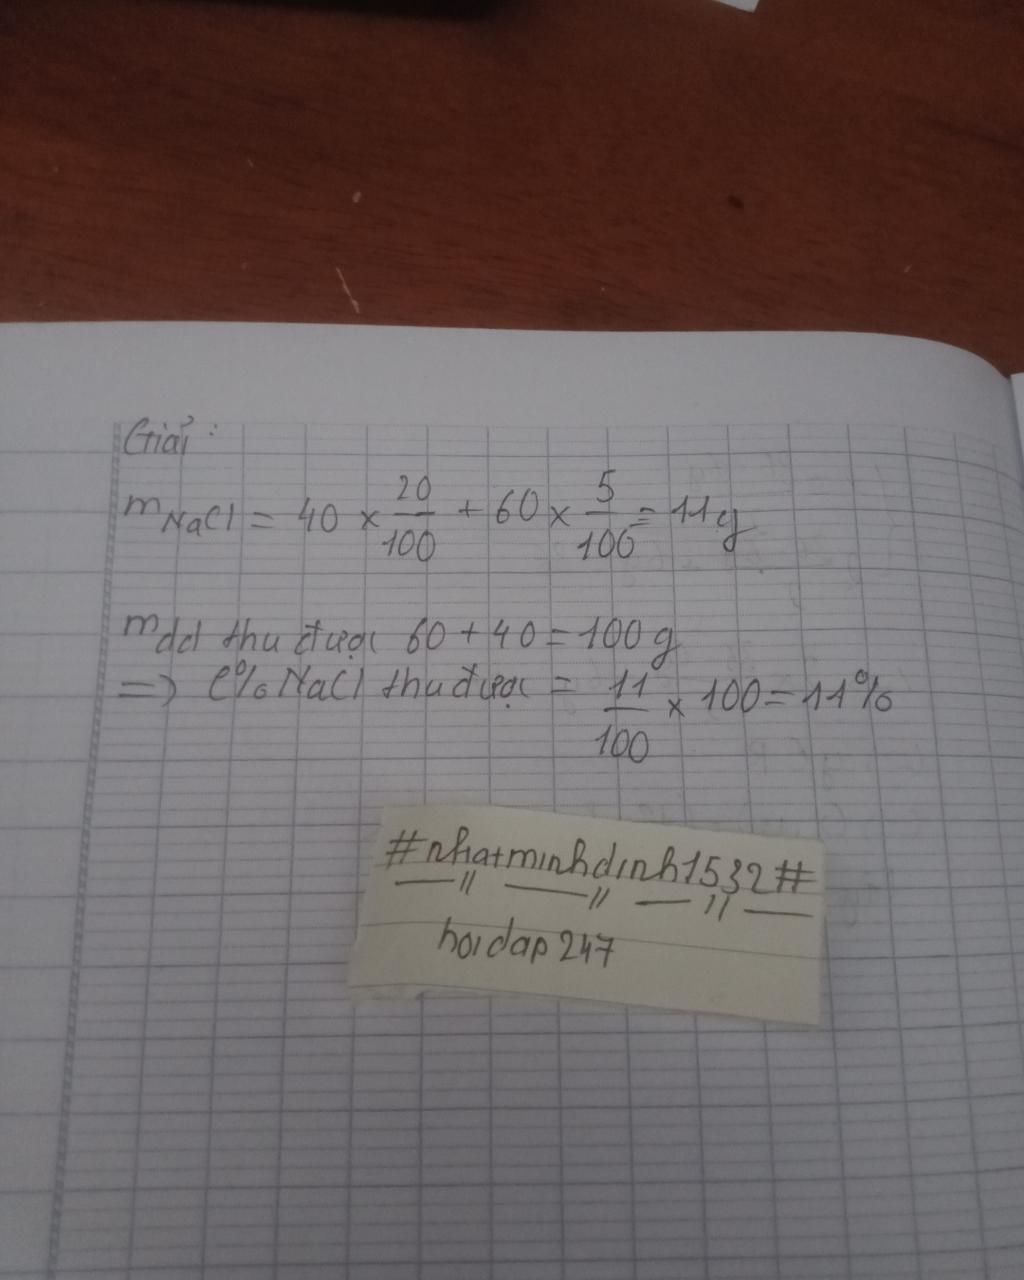 Giải:
mNaCl = 40 × 20/100 + 60 × 5/100 = 11g
mdd thu được 60 + 40 = 100g
=> C% NaCl thu được = 11/100 × 100 = 11%
#nhatminhdinh1532#
hoidap247